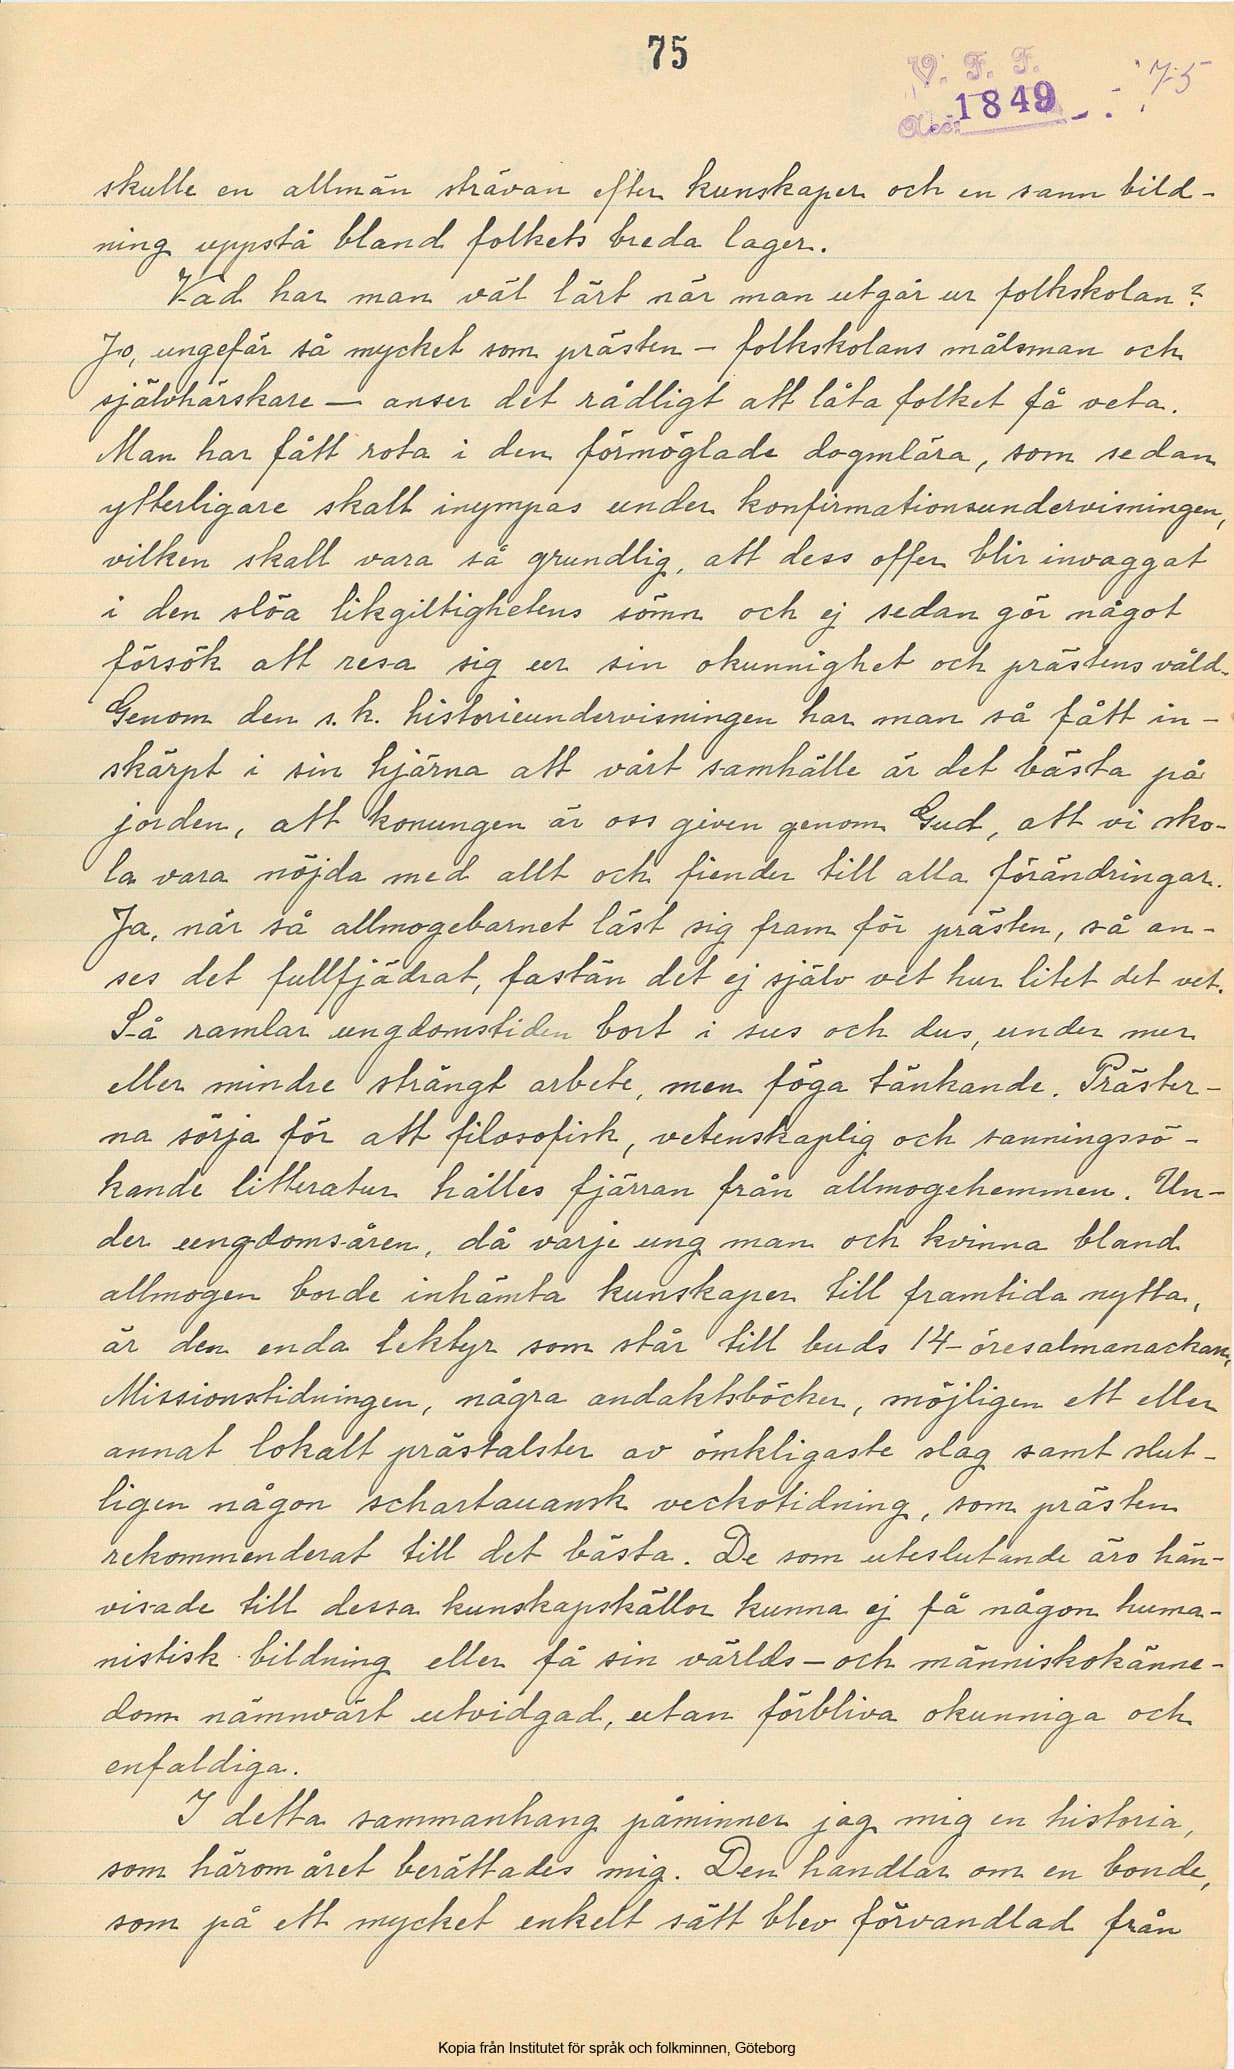 75
V. F. F. 75
Acc: 1849
skulle en allmän strävan efter kunskaper och en sann bild-
ning uppstå bland folkets breda lager.
Vad har man väl lärt när man utgår ur folkskolan?
Jo, ungefär så mycket som prästen - folkskolans målsman och
självhärskare — anser det rådligt att låta folket få veta.
Man har fått rota i den förmöglade dogmlära, som sedan
ytterligare skall inympas under konfirmationsundervisningen,
vilken skall vara så grundlig, att dess offer blir invaggat
i den slöa likgiltighetens sömn och ej sedan gör något
försök att resa sig ur sin okunnighet och prästens våld.
Genom den s.k. historieundervisningen har man så fått in-
skärpt i sin hjärna att vårt samhälle är det bästa på
jorden, att konungen är oss given genom Gud, att vi sko-
la vara nöjda med allt och fiender till alla förändringar.
Ja, när så allmogebarnet läst sig fram för prästen, så an-
ses det fullfjädrat, fastän det ej själv vet hur litet det vet.
Så ramlar ungdomstiden bort i sus och dus, under mer
eller mindre strängt arbete, men föga tänkande. Präster-
na sörja för att filosofisk, vetenskaplig och sanningssö-
kande litteratur hålles fjärran från allmogehemmen. Un-
der ungdomsåren, då varje ung man och kvinna bland
allmogen borde inhämta kunskaper till framtida nytta,
är den enda lektyr som står till buds 14-öresalmanackan,
Missionstidningen, några andaktsböcker, möjligen ett eller
annat lokalt prästalster av ömkligaste slag samt slut-
ligen någon schartauansk veckotidning, som prästen
rekommenderat till det bästa. De som uteslutande äro hän-
visade till dessa kunskapskällor kunna ej få någon huma-
nistisk bildning eller få sin världs- och människokänne-
dom nämnvärt utvidgad, utan förbliva okunniga och
enfaldiga.
I detta sammanhang påminner jag mig en historia,
som häromåret berättades mig. Den handlar om en bonde,
som på ett mycket enkelt sätt blev förvandlad från
Kopia från Institutet för språk och folkminnen, Göteborg